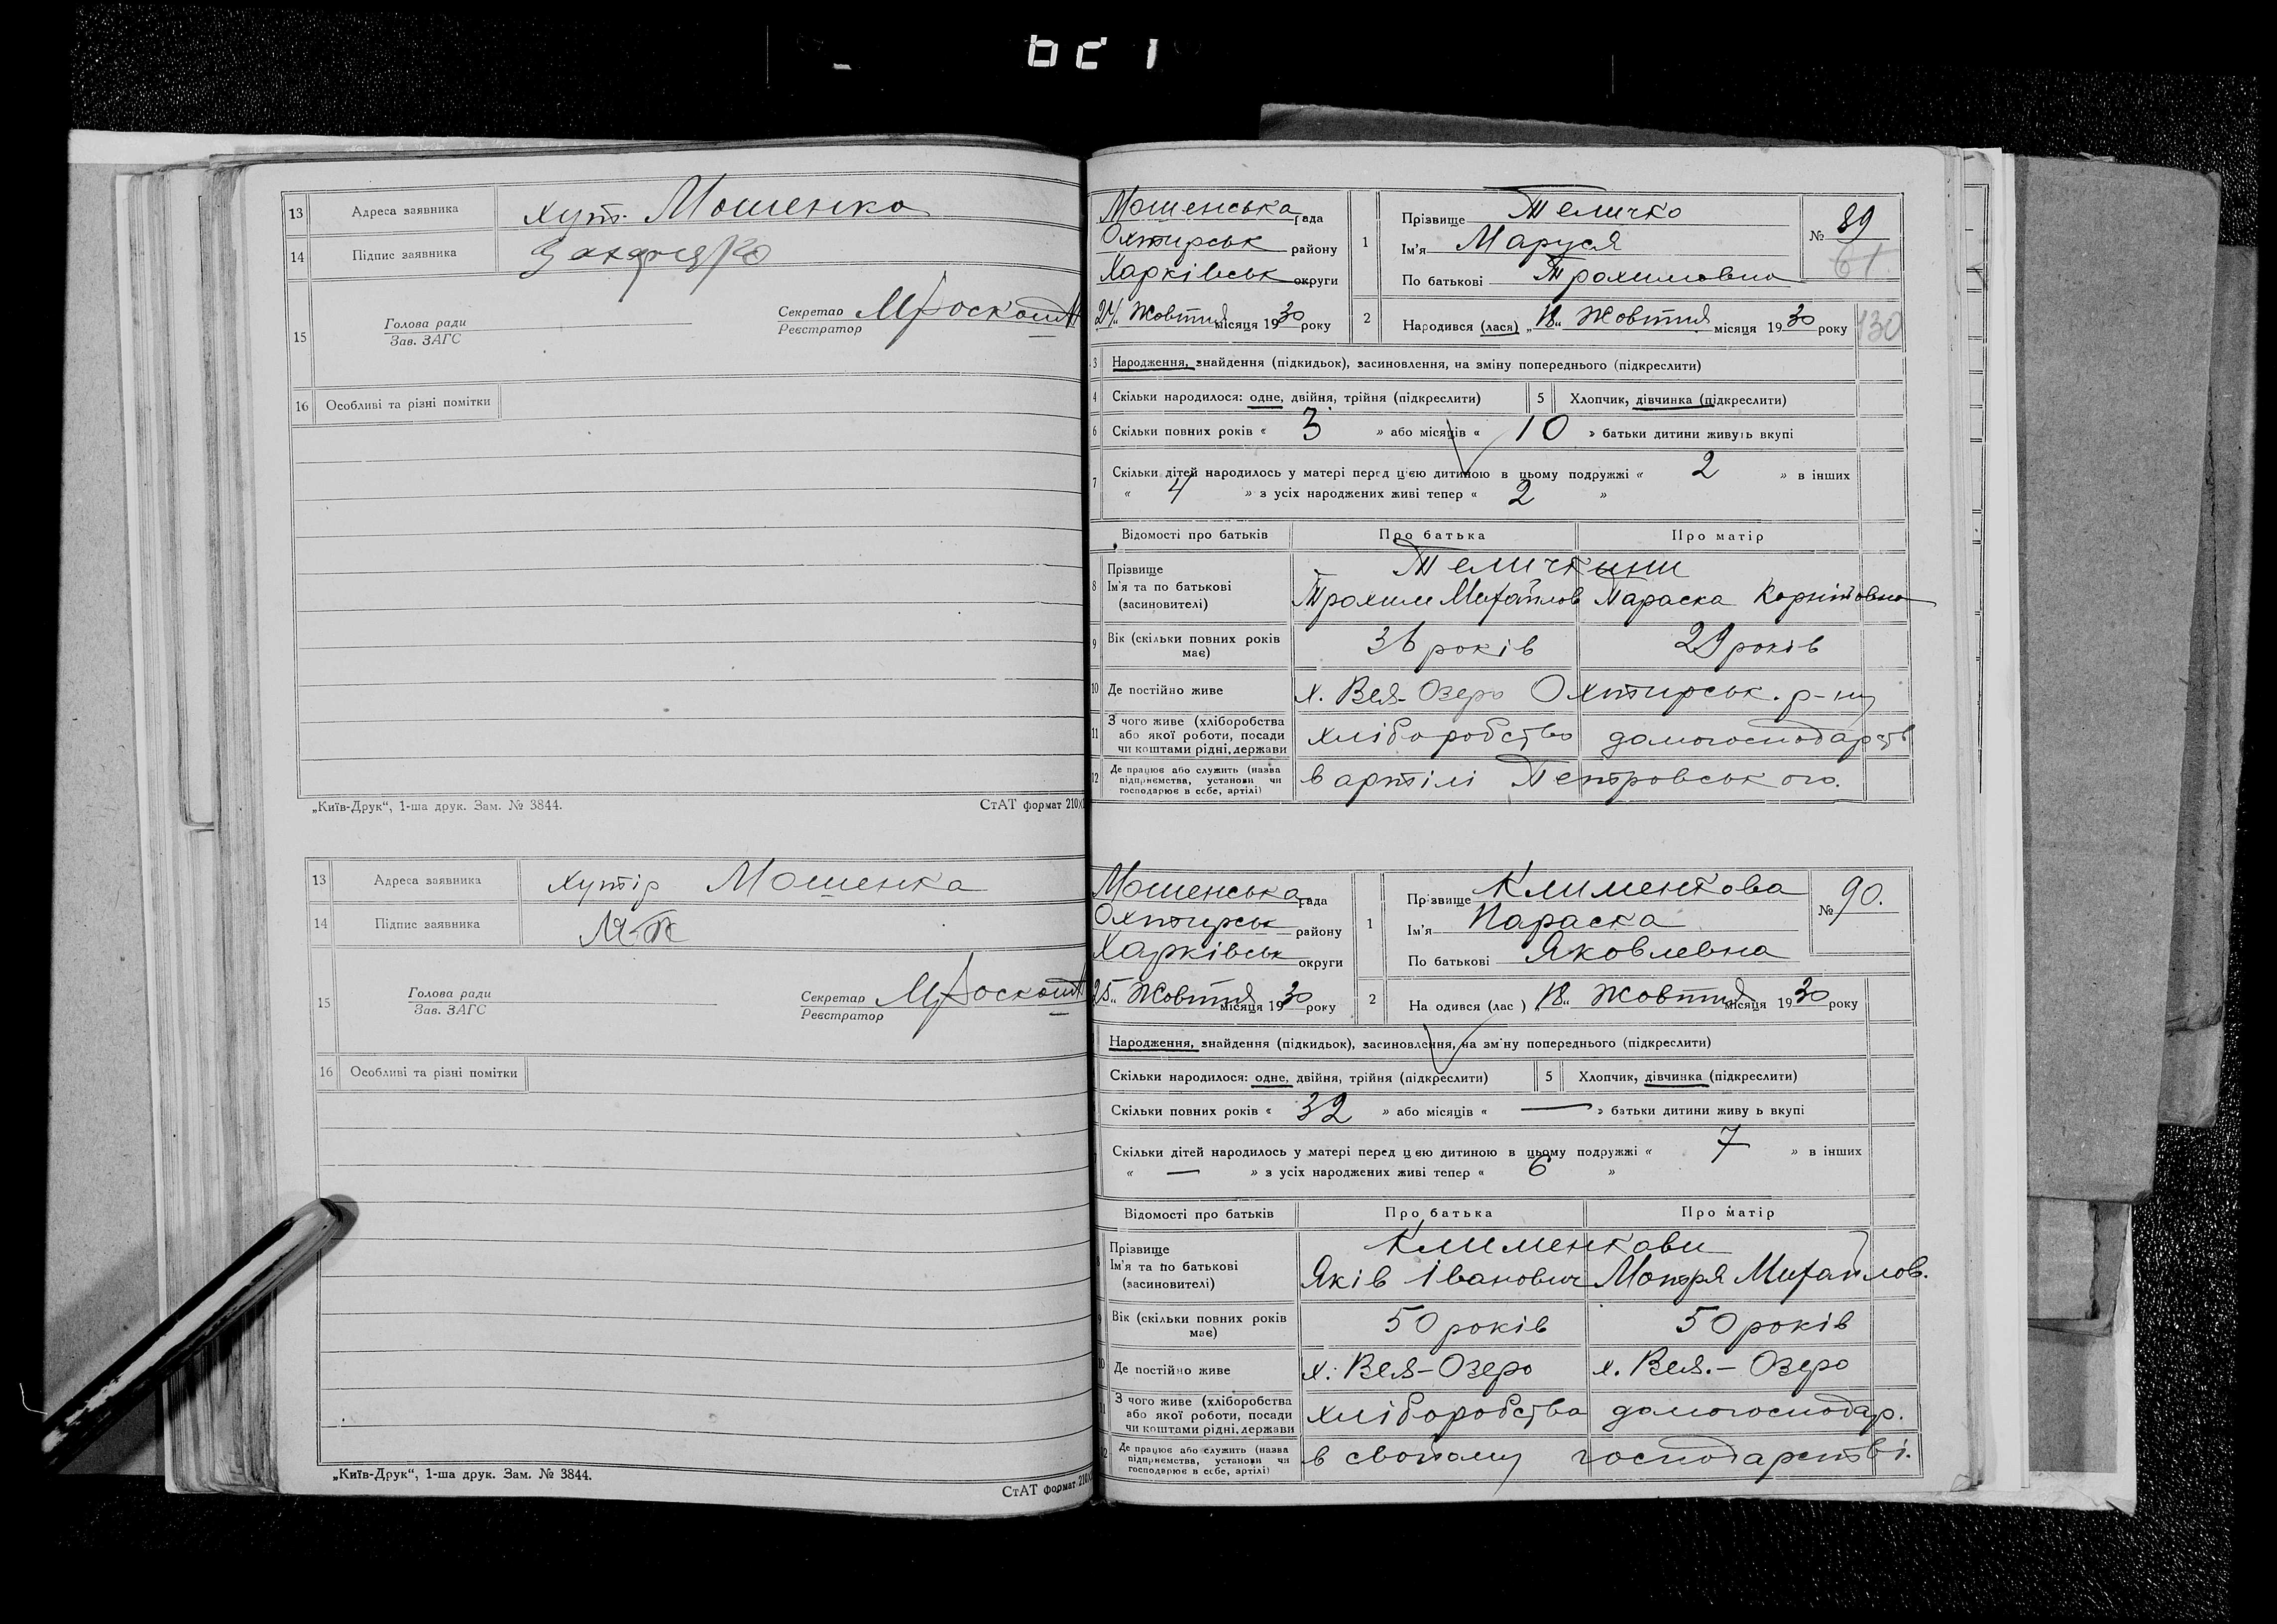 13 Адреса заявника хут. Мошенка
14 Підпис заявника
15 Голова ради
Зав. ЗАГС
Секретар
Реєстратор
16 Особливі та різні помітки
„Київ-Друк“, 1-ша друк. Зам. № 3844. СтАТ формат 210
13 Адреса заявника хутір Мошенка
14 Підпис заявника
15 Голова ради
Зав. ЗАГС
Секретар
Реєстратор
16 Особливі та різні помітки
„Київ-Друк“, 1-ша друк. Зам. № 3844.
СтАТ формат 210
Мошенська рада
Охтирськ району
Харківськ округи
24 „ Жовтня місяця 1930 року
1 Прізвище Теличко
Ім'я Маруся
По батькові Трахимовна
№ 89
61
2 Народився (лася) „18“ Жовтня місяця 1930 року
130
3 Народження, знайдення (підкидьок), засиновлення, на зміну попереднього (підкреслити)
4 Скільки народилося: одне, двійня, трійня (підкреслити) 5 Хлопчик, дівчинка (підкреслити)
6 Скільки повних років « 3 » або місяців « 10 » батьки дитини живуть вкупі
7 Скільки дітей народилось у матері перед цією дитиною в цьому подружжі « 2 » в інших
« 4 » з усіх народжених живі тепер « 2 »
Відомості про батьків Про батька Про матір
8 Прізвище Теличкини
Ім'я та по батькові Трахим Михайлов Параска Корнітовна
(засиновителі)
9 Вік (скільки повних років має) 36 років 29 років
10 Де постійно живе х. Веля-Озеро Охтирськ. р-ну
11 З чого живе (хліборобства
або якої роботи, посади
чи коштами рідні, держави хліборобство домогосподарств
12 Де працює або служить (назва
підприємства, установи чи
господарює в себе, артілі) в артілі Петровського.
Мошенська рада
Охтирськ району
Харківськ округи
25„ Жовтня місяця 1930 року
1 Прізвище Клименкова
Ім'я Параска
По батькові Яковлевна
№ 90.
2 На одився (лас ) „18“ Жовтня місяця 1930 року
Народження, знайдення (підкидьок), засиновлення, на зм ну попереднього (підкреслити)
Скільки народилося: одне, двійня, трійня (підкреслити) 5 Хлопчик, дівчинка (підкреслити)
Скільки повних років « 32 » або місяців « — » батьки дитини живу ь вкупі
Скільки дітей народилось у матері перед цією дитиною в цьому подружжі « 7 » в інших
« — » з усіх народжених живі тепер « 6 »
Відомості про батьків Про батька Про матір
8 Прізвище Клименкови
Ім'я та по батькові Яків Іванович Мотря Михайлов.
(засиновителі)
9 Вік (скільки повних років має) 50 років 50 років
10 Де постійно живе х. Веля-Озеро х. Веля.-Озеро
11 З чого живе (хліборобства
або якої роботи, посади
чи коштами рідні, держави хліборобства домогосподар.
12 Де працює або служить (назва
підприємства, установи чи
господарює в себе, артілі) в свойому господарстві.